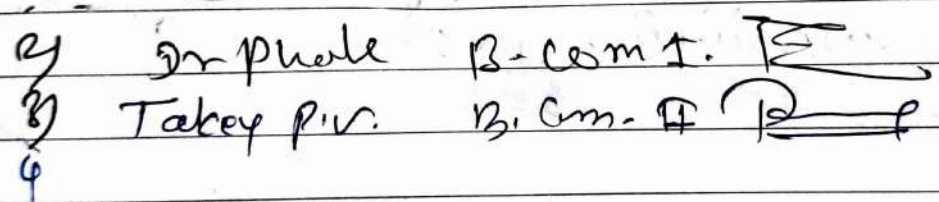 2) Dr Phole B-com I.
3) Takey P.V. B.Com. II
4